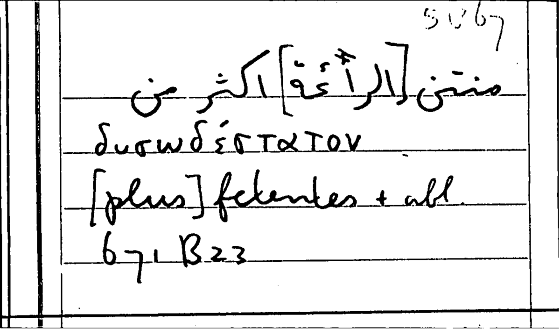 5067
منتن [الرائحة] اكثر من
δυσωδέστατον
[plus] fetentes + abl.
671 B23